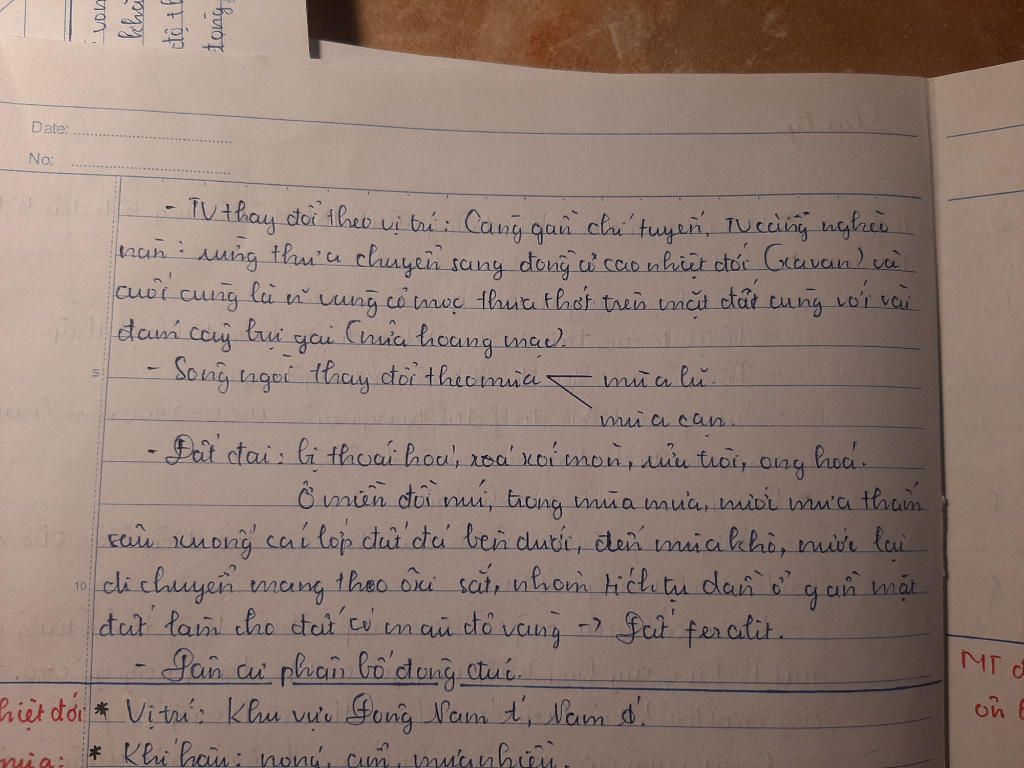 Date:
No:
- TV thay đổi theo vị trí: Càng gần chí tuyến, TV càng nghèo
nàn: rừng thưa chuyển sang đồng cỏ cao nhiệt đới (xavan) và
cuối cùng là vùng cỏ mọc thưa thớt trên mặt đất cùng với vài
đám cây bụi gai (nửa hoang mạc).
- Sông ngòi thay đổi theo mùa mùa lũ.
mùa cạn.
5
- Đất đai: bị thoái hoá, xoá xói mòn, rửa trôi, ong hoá.
Ở miền đồi núi, trong mùa mưa, nước mưa thấm
sâu xuống các lớp đất đá bên dưới, đến mùa khô, nước lại
10 di chuyển mang theo ôxi sắt, nhôm tích tụ dần ở gần mặt
đất làm cho đất có màu đỏ vàng → Đất feralit.
- Dân cư phân bố đông đúc.
hiệt đới * Vị trí: Khu vực Đông Nam Á, Nam Á.
mùa: * Khí hậu: nóng, ẩm, mưa nhiều.
MT đ
ôn